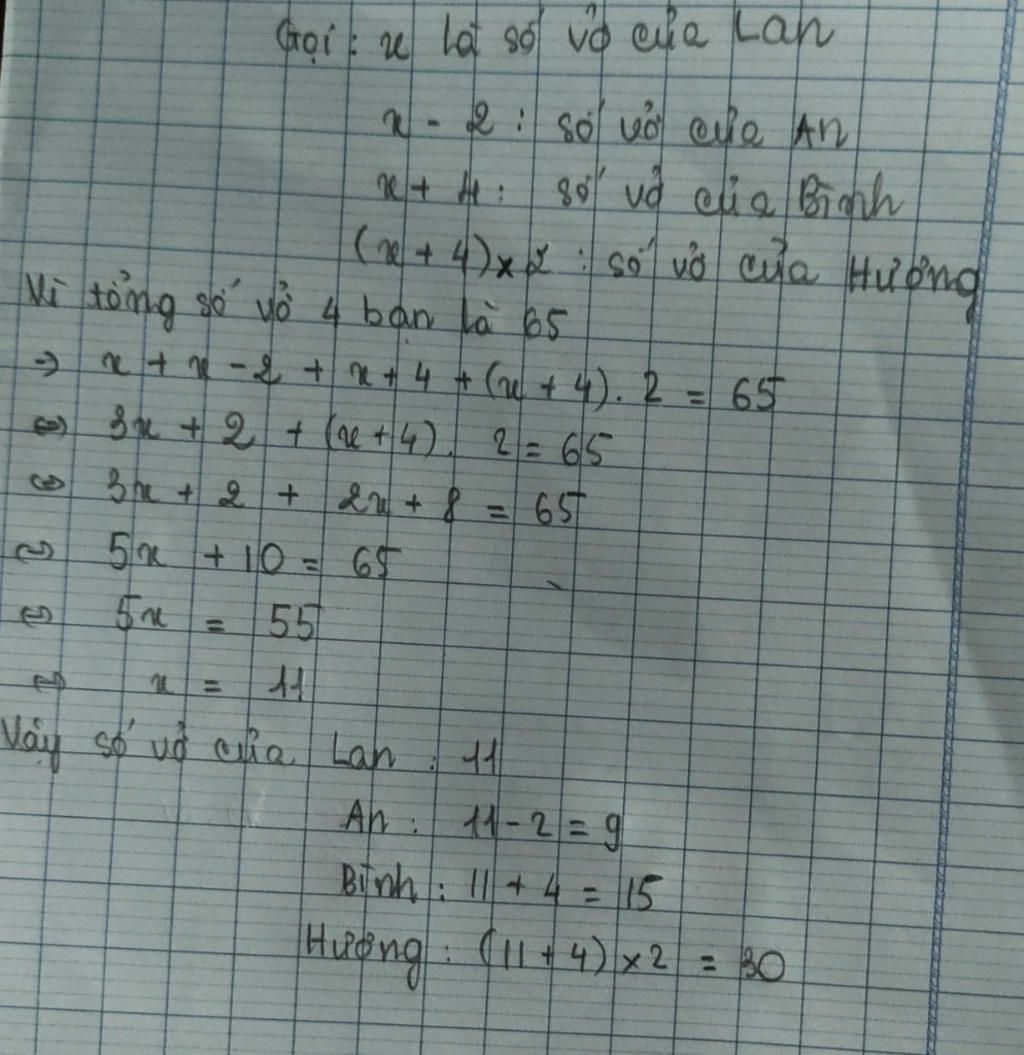 Gọi : x là số vở của Lan
x - 2 : số vở của An
x + 4 : số vở của Bình
(x + 4) x 2 : số vở của Hương
Vì tổng số vở 4 bạn là 65
=> x + x - 2 + x + 4 + (x + 4) . 2 = 65
<=> 3x + 2 + (x + 4) . 2 = 65
<=> 3x + 2 + 2x + 8 = 65
<=> 5x + 10 = 65
<=> 5x = 55
<=> x = 11
Vậy số vở của Lan : 11
An : 11 - 2 = 9
Bình : 11 + 4 = 15
Hương : (11 + 4) x 2 = 30